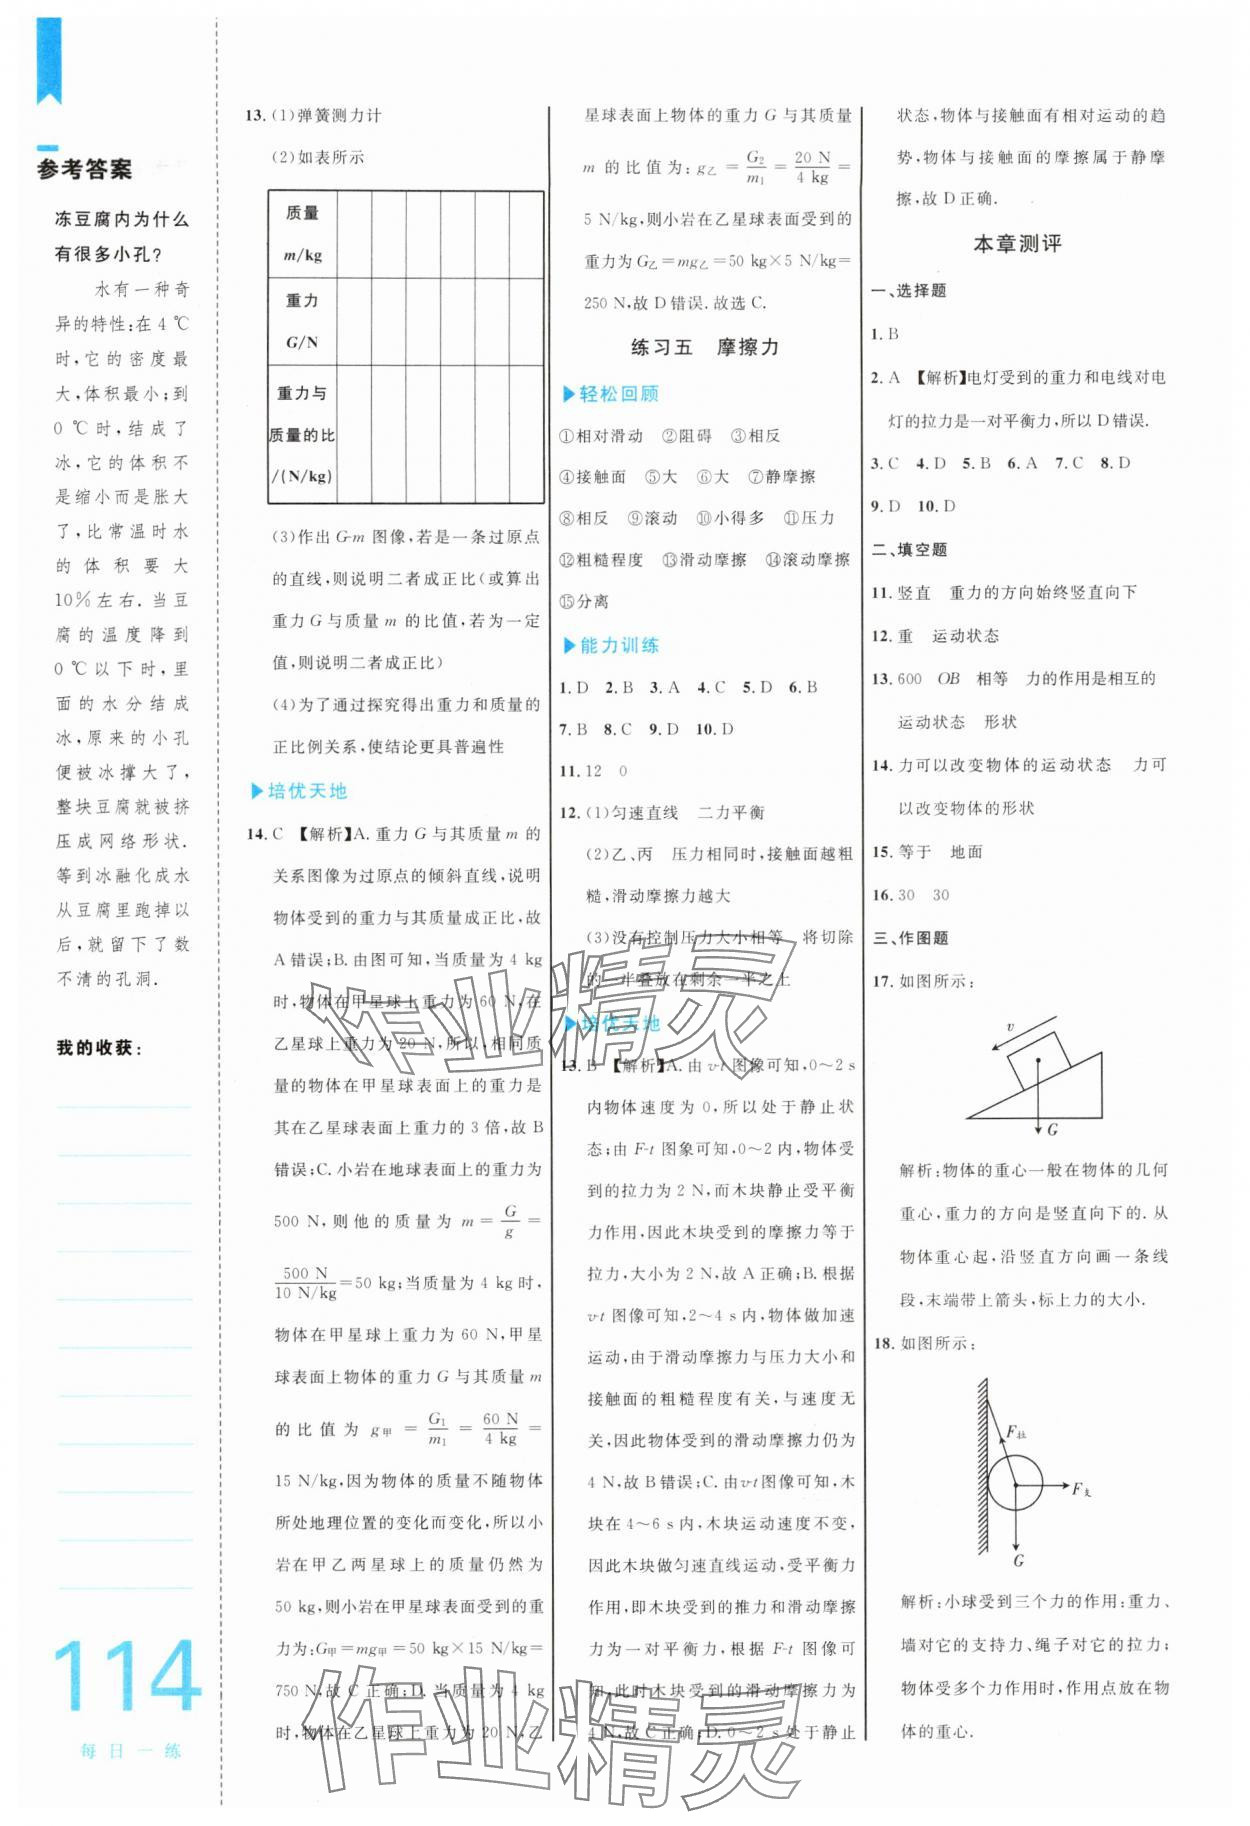 参考答案
冻豆腐内为什么
有很多小孔?
水有一种奇
异的特性:在4℃
时,它的密度最
大,体积最小;到
0℃时,结成了
冰,它的体积不
是缩小而是胀大
了,比常温时水
的体积要大
10%左右.当豆
腐的温度降到
0℃以下时,里
面的水分结成
冰,原来的小孔
便被冰撑大了,
整块豆腐就被挤
压成网络形状.
等到冰融化成水
从豆腐里跑掉以
后,就留下了数
不清的孔洞.
我的收获:
114
每日一练
13.(1)弹簧测力计
(2)如表所示
质量
m/kg
重力
G/N
重力与
质量的比
/(N/kg)
(3)作出G-m图像,若是一条过原点
的直线,则说明二者成正比(或算出
重力G与质量m的比值,若为一定
值,则说明二者成正比)
(4)为了通过探究得出重力和质量的
正比例关系,使结论更具普遍性
▶培优天地
14.C 【解析】A.重力G与其质量m的
关系图像为过原点的倾斜直线,说明
物体受到的重力与其质量成正比,故
A错误;B.由图可知,当质量为4 kg
时,物体在甲星球上重力为60 N,在
乙星球上重力为20 N,所以,相同质
量的物体在甲星球表面上的重力是
其在乙星球表面上重力的3倍,故B
错误;C.小岩在地球表面上的重力为
500 N,则他的质量为 m = G/g =
500 N/10 N/kg=50 kg;当质量为4 kg时,
物体在甲星球上重力为60 N,甲星
球表面上物体的重力G与其质量m
的比值为 g甲 = G1/m1 = 60 N/4 kg =
15 N/kg,因为物体的质量不随物体
所处地理位置的变化而变化,所以小
岩在甲乙两星球上的质量仍然为
50 kg,则小岩在甲星球表面受到的重
力为:G甲=mg甲=50 kg×15 N/kg=
750 N,故C正确;D.当质量为4 kg
时,物体在乙星球上重力为20 N,乙
星球表面上物体的重力G与其质量
m的比值为:g乙 = G2/m1 = 20 N/4 kg =
5 N/kg,则小岩在乙星球表面受到的
重力为G乙=mg乙=50 kg×5 N/kg=
250 N,故D错误.故选C.
练习五 摩擦力
▶轻松回顾
①相对滑动 ②阻碍 ③相反
④接触面 ⑤大 ⑥大 ⑦静摩擦
⑧相反 ⑨滚动 ⑩小得多 ⑪压力
⑫粗糙程度 ⑬滑动摩擦 ⑭滚动摩擦
⑮分离
▶能力训练
1.D 2.B 3.A 4.C 5.D 6.B
7.B 8.C 9.D 10.D
11.12 0
12.(1)匀速直线 二力平衡
(2)乙、丙 压力相同时,接触面越粗
糙,滑动摩擦力越大
(3)没有控制压力大小相等 将切除
的一半叠放在剩余一半之上
▶培优天地
13.B 【解析】A.由v-t图像可知,0～2 s
内物体速度为0,所以处于静止状
态;由F-t图象可知,0～2内,物体受
到的拉力为2 N,而木块静止受平衡
力作用,因此木块受到的摩擦力等于
拉力,大小为2 N,故A正确;B.根据
v-t图像可知,2～4 s内,物体做加速
运动,由于滑动摩擦力与压力大小和
接触面的粗糙程度有关,与速度无
关,因此物体受到的滑动摩擦力仍为
4 N,故B错误;C.由v-t图像可知,木
块在4～6 s内,木块运动速度不变,
因此木块做匀速直线运动,受平衡力
作用,即木块受到的推力和滑动摩擦
力为一对平衡力,根据F-t图像可
知,此时木块受到的滑动摩擦力为
4 N,故C正确;D.0～2 s处于静止
状态,物体与接触面有相对运动的趋
势,物体与接触面的摩擦属于静摩
擦,故D正确.
本章测评
一、选择题
1.B
2.A 【解析】电灯受到的重力和电线对电
灯的拉力是一对平衡力,所以D错误.
3.C 4.D 5.B 6.A 7.C 8.D
9.D 10.D
二、填空题
11.竖直 重力的方向始终竖直向下
12.重 运动状态
13.600 OB 相等 力的作用是相互的
运动状态 形状
14.力可以改变物体的运动状态 力可
以改变物体的形状
15.等于 地面
16.30 30
三、作图题
17.如图所示:
v
G
解析:物体的重心一般在物体的几何
重心,重力的方向是竖直向下的.从
物体重心起,沿竖直方向画一条线
段,末端带上箭头,标上力的大小.
18.如图所示:
F拉
F支
G
解析:小球受到三个力的作用:重力、
墙对它的支持力、绳子对它的拉力;
物体受多个力作用时,作用点放在物
体的重心.
作业精灵
作业精灵